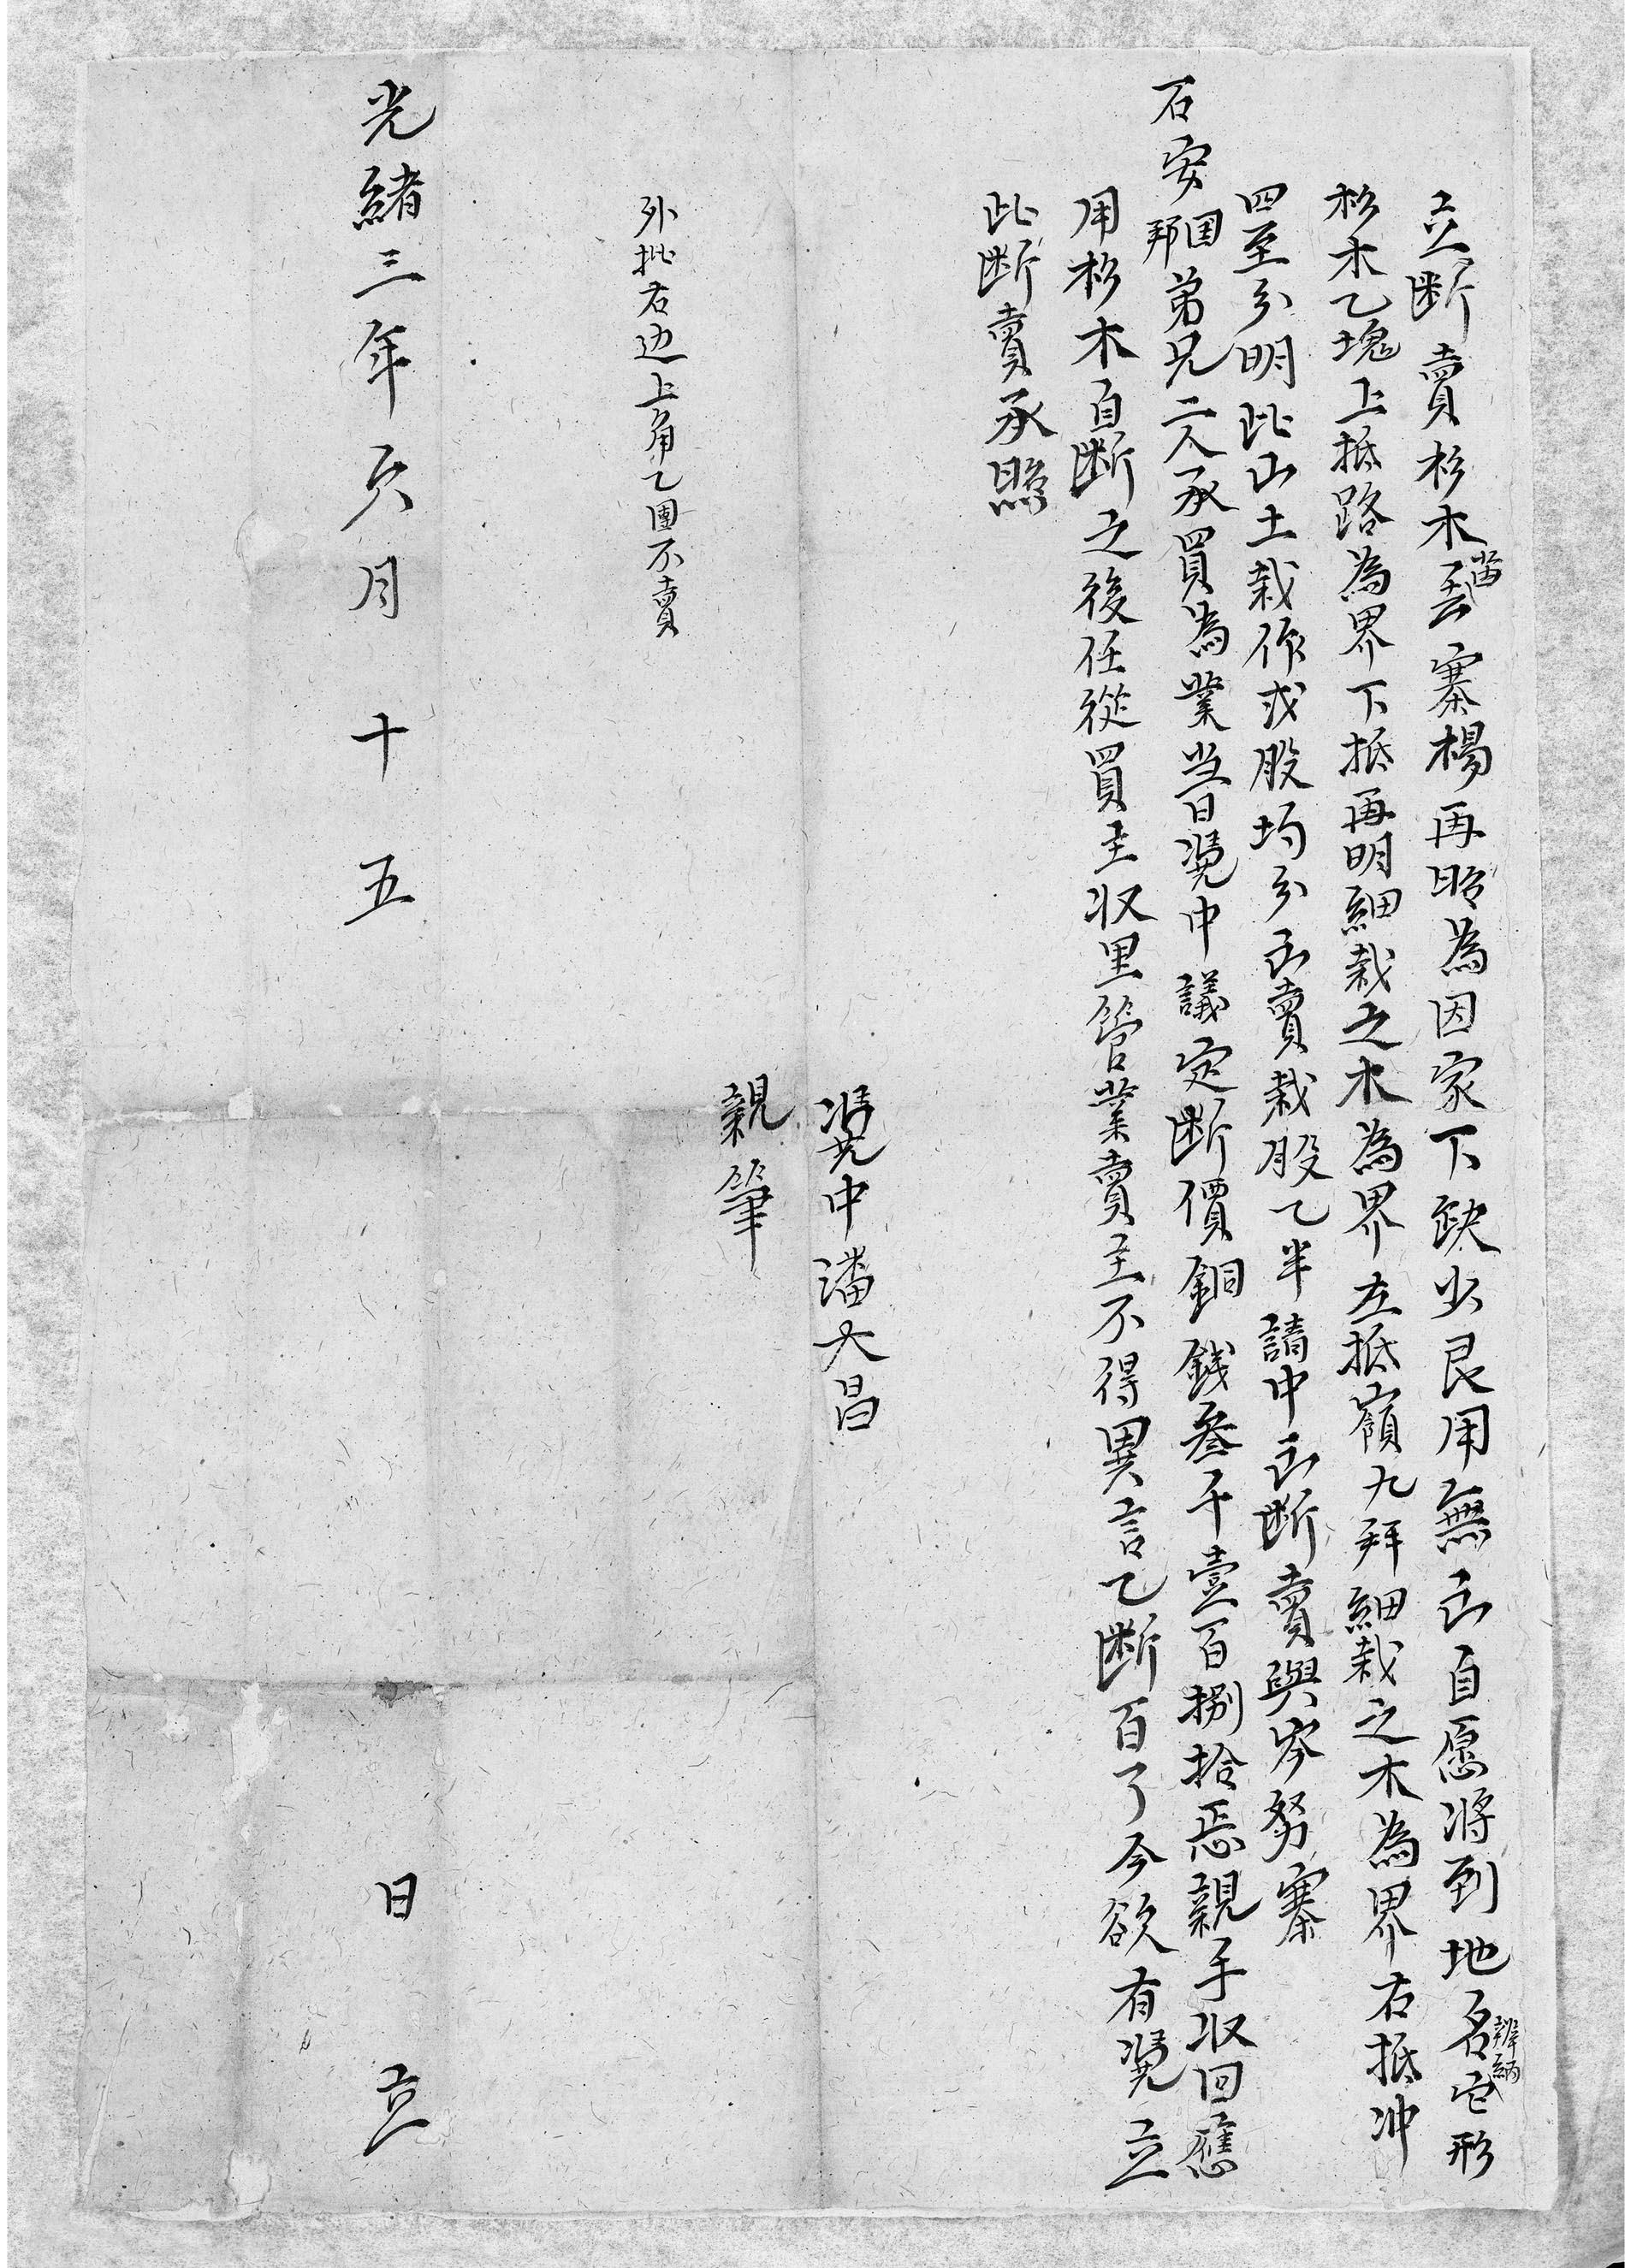 立断賣杉木苗丟寨楊再昭為因家下缺少艮用無出自愿將到地名辣納宅形
杉木乙塊上抵路為界下抵再明細栽之木為界左抵嶺九拜細栽之木為界右抵冲
四至分明此山土栽作弍股均分出賣栽股乙半請中出断賣與岑努寨
石安国邦弟兄二人承買為業当日凴中議定断價銅錢叁千壹百捌拾文親手收回應
用杉木自断之後任從買主收里管業賣主不得異言乙断百了今欲有凴立
此断賣承照
凴中潘大昌
親筆
外批右边上角乙團不賣
光緒三年六月十五日立